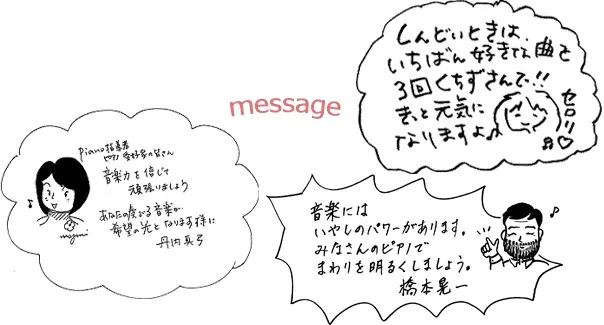 message
しんどいときは、
いちばん好きな曲を
3回くちずさんで!!
きっと元気に
なりますよ♪
セロリ♡
Piano指導者
ピアノ愛好家の皆さん
音楽力を信じて
頑張りましょう
あなたの奏でる音楽が
希望の光となります様に
丹内真弓
mayumi
音楽には
いやしのパワーがあります。
みなさんのピアノで
まわりを明るくしましょう。
橋本晃一